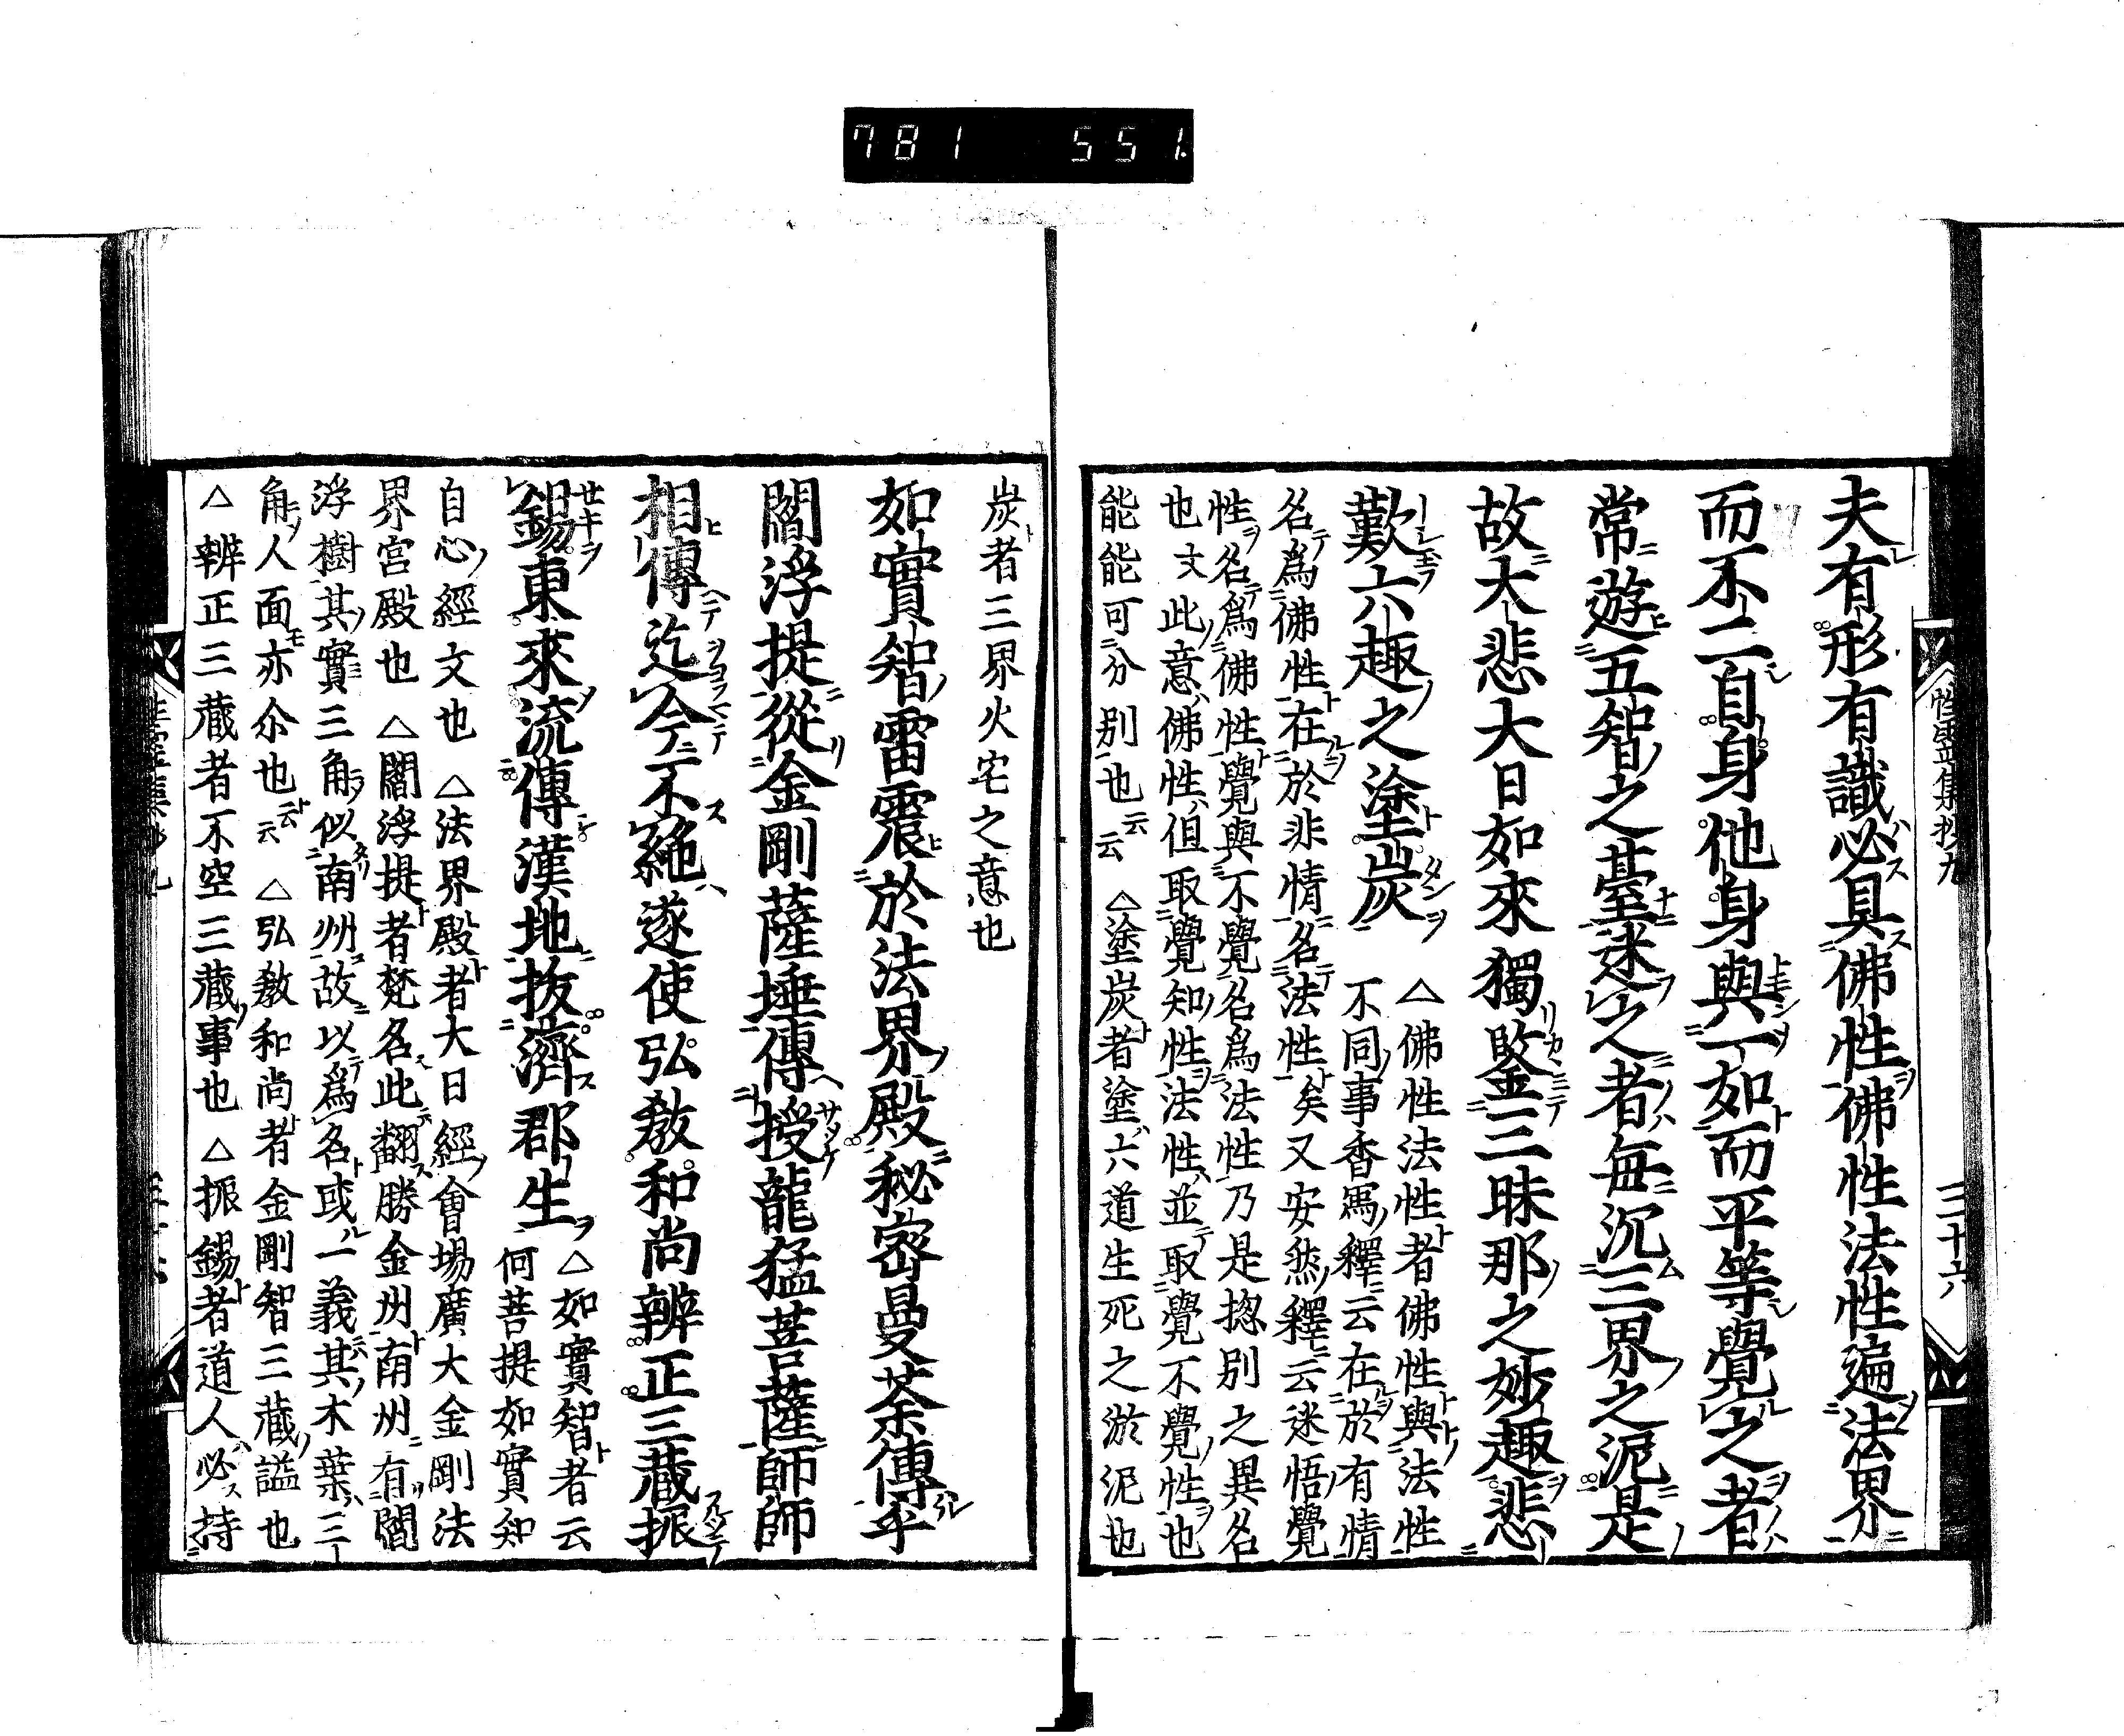 781 551
性霊集抄九
三十六
夫有形有識必具佛性佛性法性遍法界
而不二自身他身與一如而平等覺之者
常遊五智之臺迷之者毎沉三界之泥是
故大悲大日如來獨鍳三昧那之妙趣悲
歎六趣之塗炭
△佛性法性者佛性與法性
不同事香馬釋云在於有情
名爲佛性在於非情名法性矣又安然釋云迷悟覺
性名爲佛性覺與不覺名爲法性乃是揔別之異名
也文此意佛性但取覺知性法性並取覺不覺性也
能能可分别也云云 △塗炭者塗六道生死之淤泥也
炭者三界火宅之意也
如實智雷震於法界殿秘密曼荼傳乎
閻浮提從金剛薩埵傳授龍猛菩薩師師
相傳迄今不絶遂使弘教和尚辨正三藏振
錫東來流傳漢地拔濟郡生
△如實智者云
何菩提如實知
自心經文也 △法界殿者大日經會場廣大金剛法
界宮殿也 △閻浮提者梵名此翻勝金州南州有閻
浮樹其實三角似南州故以爲名或一義其木葉三
角人面亦尒也云云 △弘教和尚者金剛智三藏謚也
△辨正三藏者不空三藏事也 △振錫者道人必持